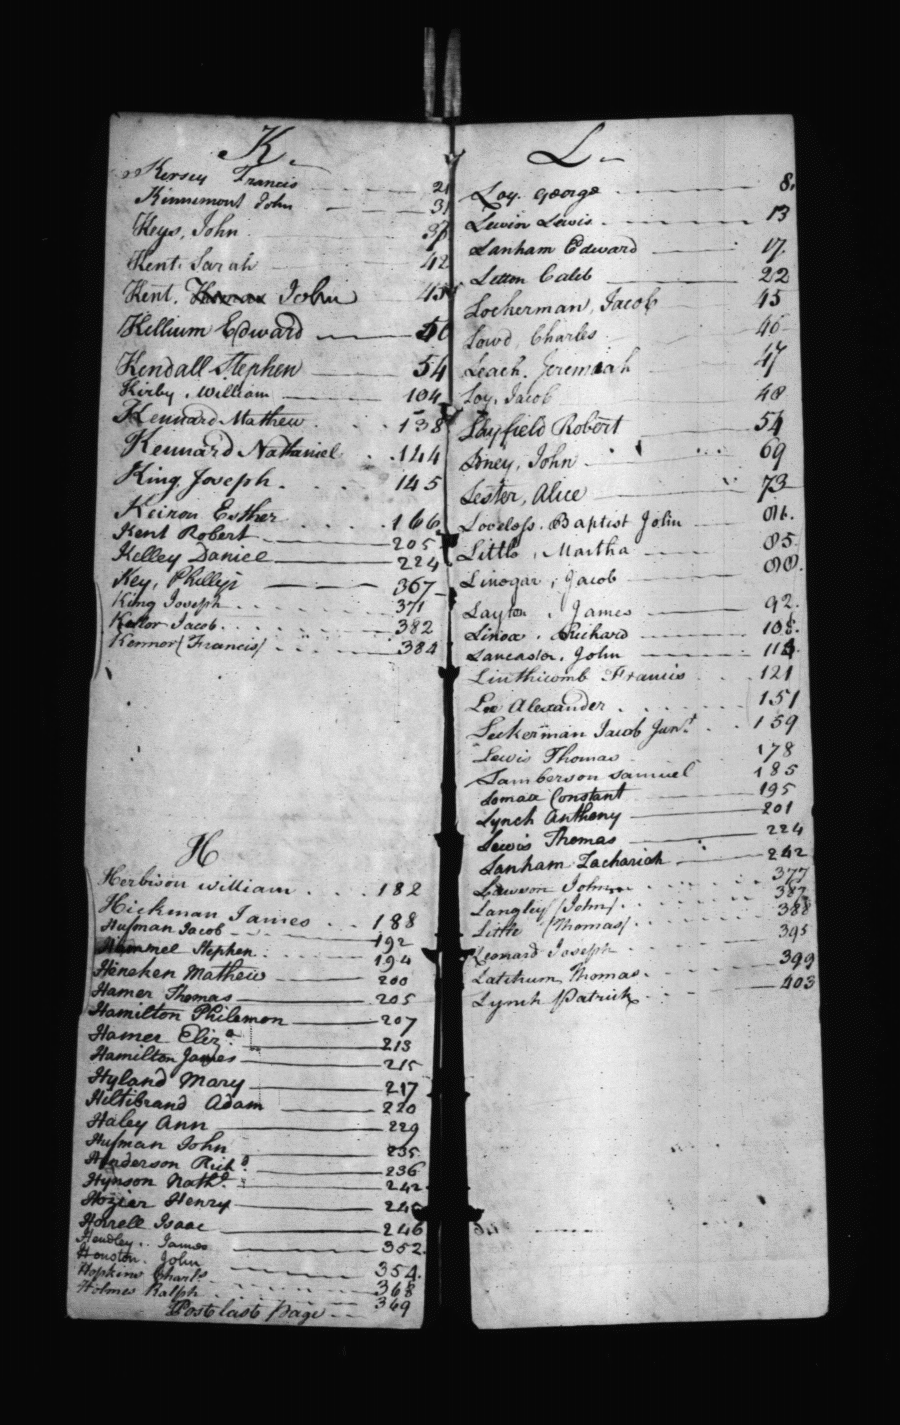 K
Kersey Francis 21
Kinnimont John 31
Keys, John 37
Kent. Sarah 42
Kent. John 45
Kellium Edward 50
Kendall Stephen 54
Kirby. William 104
Kennard Mathew 138
Kennard Nathaniel 144
King, Joseph 145
Keiron Esther 166
Kent Robert 205
Kelley Daniel 224
Key, Phillip 367
King Joseph 371
Keller Jacob 382
Kennor (Francis) 384
H
Herbison William 182
Hickman James 188
Hufman Jacob 192
Hammel Stephen 194
Heneken Mathew 200
Hamer Thomas 205
Hamilton Philemon 207
Hamer Eliz.a 213
Hamilton James 215
Hyland Mary 217
Hiltibrand Adam 220
Haley Ann 229
Hufman John 235
Henderson Rich.d 236
Hynson Nath.l 242
Hozier Henry
Horrell Isaac 246
Hendley. James 352
Houston. John 354
Hopkins Charls 368
Holmes Ralph 369
Post last page
L
Loy. George 8.
Lewin Lewis 13
Lanham Edward 17
Letton Caleb 22
Locherman, Jacob 45
Lowd, Charles 46
Leach. Jeremiah 47
Loy, Jacob 48
Layfield Robert 54
Loney, John 69
Lester, Alice 73
Lovelass. Baptist John
Little, Martha 85
Linogar, Jacob 88.
Layton, James 92.
Linox. Richard 108.
Lancaster, John 114
Linthicomb Francis 121
Lee Alexander 151
Leckerman Jacob Junr. 159
Lewis Thomas 178
Lamberson Samuel 185
Lomax Constant 195
Lynch Anthony 201
Lewis Thomas 224
Lanham Zachariah 242
Lawson John 377
Langley (John) 387
Little (Thomas) 388
Leonard Joseph 395
Latchum, Thomas. 399
Lynch Patrick 403